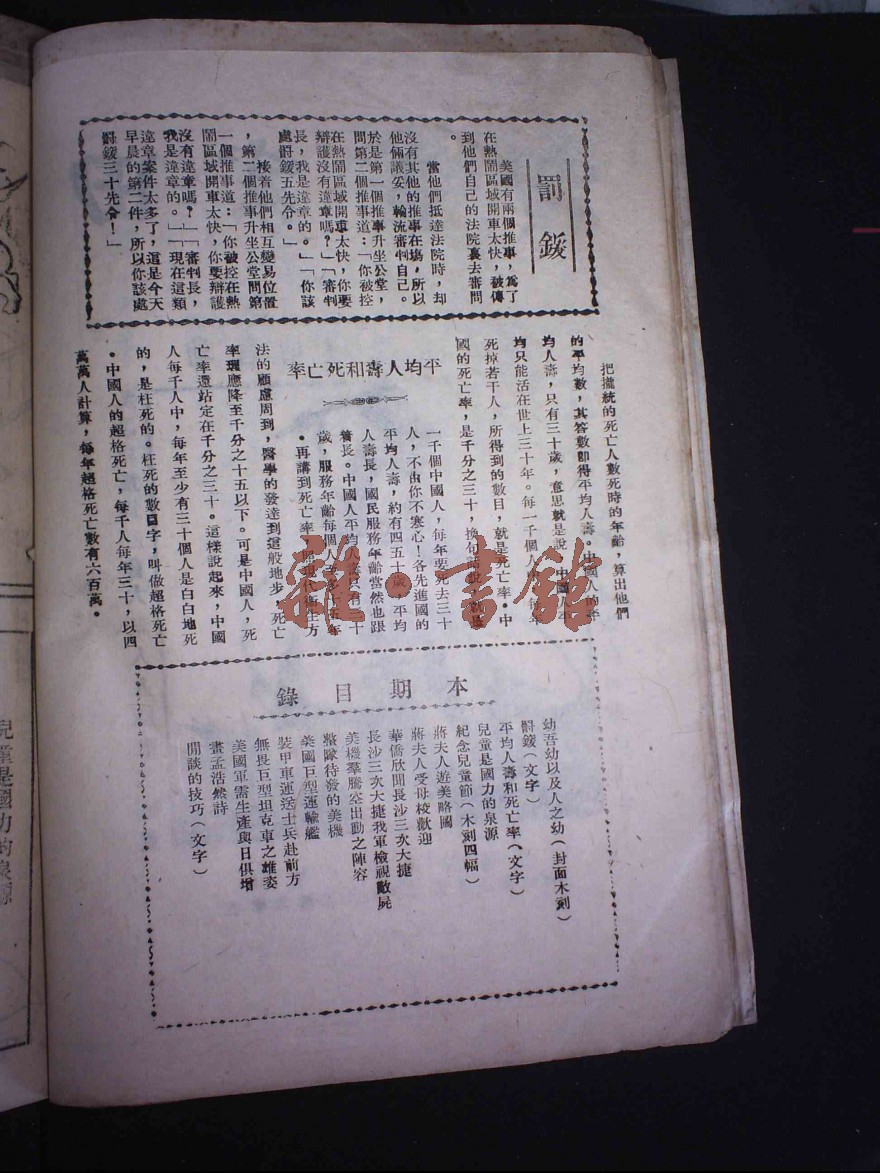 罰鍰
美國有兩個推事，爲了
在熱鬧區域開車太快，被傳
到他們自己的法院裏去審問
。
當他們抵達法院時，却
沒有其他的推事在場，所以
他倆議妥，輪流審判自己。
於是第一個推事升坐公堂，
問第二個推事道：「你被控
在熱鬧區域開車太快，你要
辯護沒有違章嗎？」「審判
長，我是違章的。」「你該
處罸鍰五先令。」
接着他們相互變易位置
，第二個推事升坐公堂問第
一個推事道：「你被控在熱
鬧區域開車太快，你要辯護
沒有違章嗎？」「審判長，
我是違章的。」「現在這類
違章案件太多了，這是今天
早晨的第二件，所以你該處
罸鍰三十先令！」
平均人壽和死亡率
把攏統的死亡人數死時的年齡，算出他們
的平均數，其答數卽得平均人壽。中國人的平
均人壽，只有三十歲，意思就是說，中國人平
均只能活在世上三十年。每一千個人，每年
死掉若干人，所得到的數目，就是死亡率。中
國的死亡率，是千分之三十，換句話說，就是
一千個中國人，每年要死去三十
人，不由你不寒心！各先進國的
平均人壽，約有四五十歲，平均
人壽長，國民服務年齡當然也跟
着長。中國人平均人壽只有三十
歲，服務年齡每個人至多十五年
。再講到死亡率，照現代衛生方
法的顧慮周到，醫學的發達到這般地步，死亡
率理應降至千分之十五以下。可是中國人，死
亡率還站定在千分之三十。這樣說起來，中國
人每千人中，每年至少有三十個人是白白地死
的，是枉死的。枉死的數目字，叫做超格死亡
。中國人的超格死亡，每千人每年三十，以四
萬萬人計算，每年超格死亡數有六百萬。
本期目錄
幼吾幼以及人之幼（封面木刻）
罸鍰（文字）
平均人壽和死亡率（文字）
兒童是國力的泉源
紀念兒童節（木刻四幅）
蔣夫人遊美略圖
蔣夫人受母校歡迎
華僑欣聞長沙三次大捷
長沙三次大捷我軍檢視敵屍
美機羣騰空出動之陣容
整隊待發的美機
美國巨型運輸艦
裝甲車運送士兵赴前方
無畏巨型坦克車之雄姿
美國軍需生產與日俱增
畫孟浩然詩
閒談的技巧（文字）
兒童是國力的泉源
雜·書館